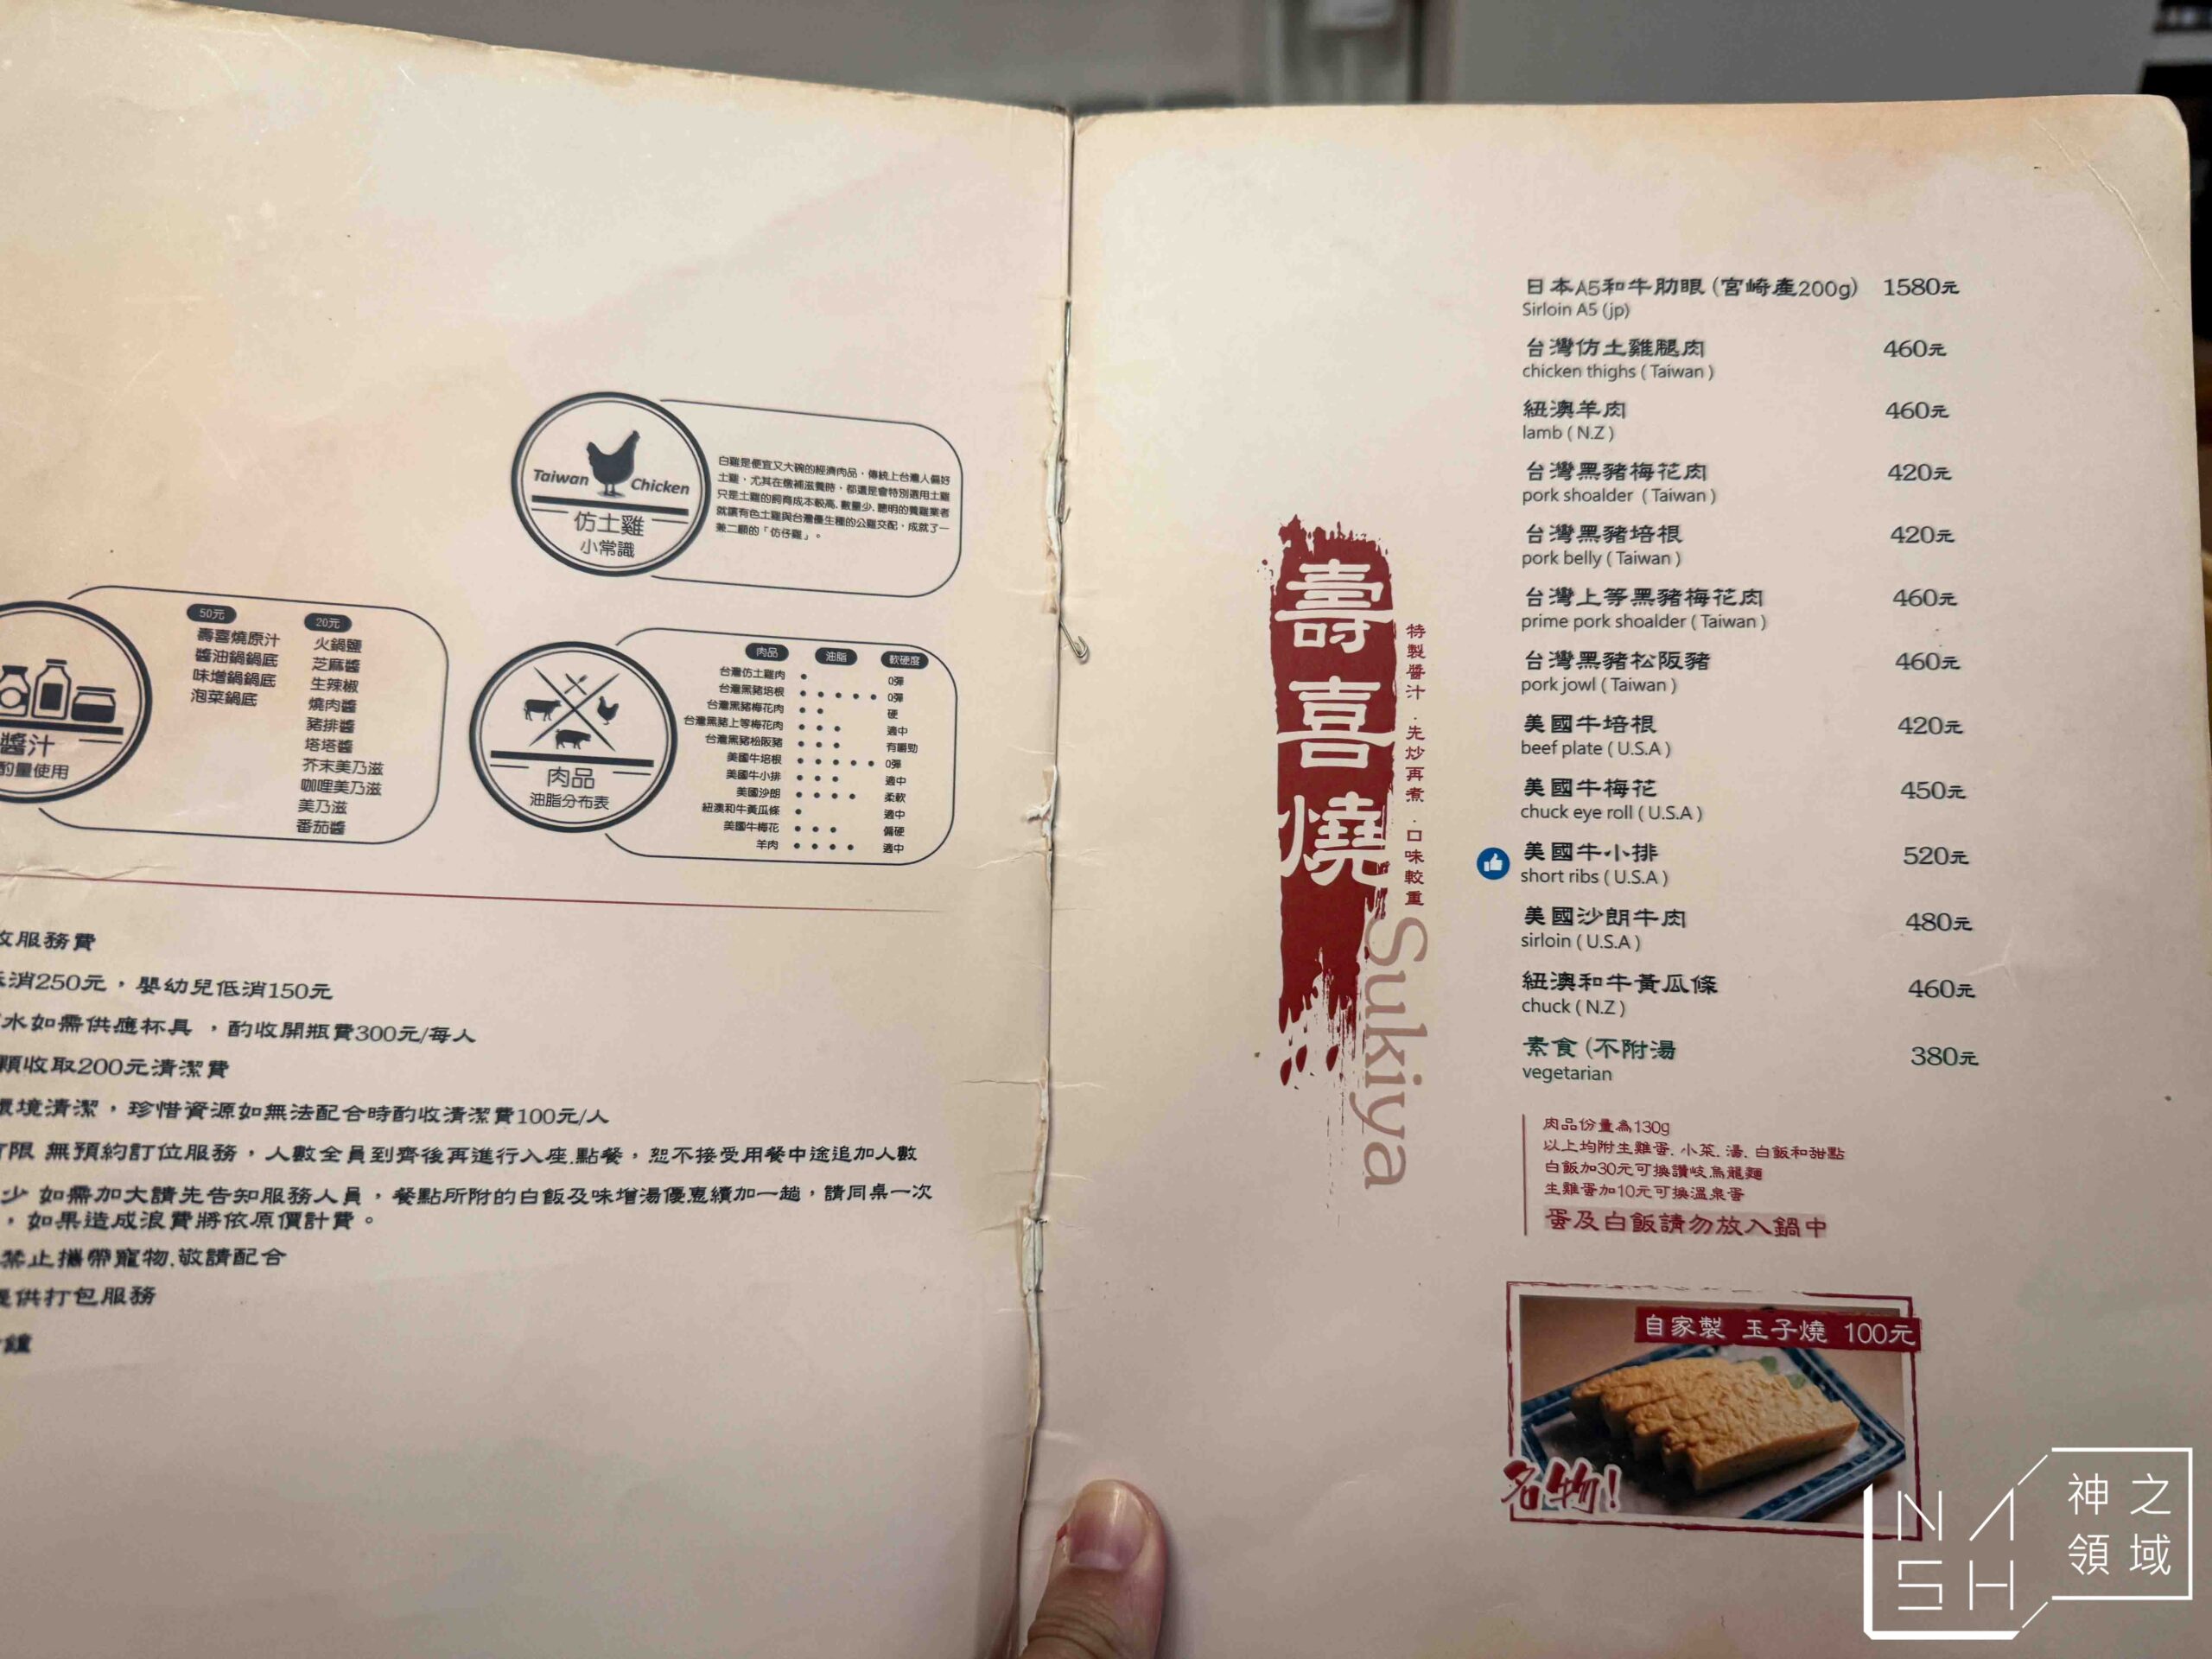 Taiwan Chicken
仿土雞
小常識
白雞是便宜又大碗的經濟肉品，傳統上台灣人偏好
土雞，尤其在燉補滋養時，都還是會特別選用土雞
只是土雞的飼育成本較高，數量少，聰明的養雞業者
就讓有色土雞與台灣優生種的公雞交配，成就了一
兼二顧的「仿仔雞」。
醬汁
酌量使用
50元
壽喜燒原汁
醬油鍋鍋底
味增鍋鍋底
泡菜鍋底
20元
火鍋鹽
芝麻醬
生辣椒
燒肉醬
豬排醬
塔塔醬
芥末美乃滋
咖哩美乃滋
美乃滋
番茄醬
肉品
油脂分布表
肉品 油脂 軟硬度
台灣仿土雞肉 • Q彈
台灣黑豬培根 • • • • • Q彈
台灣黑豬梅花肉 • • 硬
台灣黑豬上等梅花肉 • • • 適中
台灣黑豬松阪豬 • • • 有嚼勁
美國牛培根 • • • • • Q彈
美國牛小排 • • • 適中
美國沙朗 • • • • 柔軟
紐澳和牛黃瓜條 • 適中
美國牛梅花 • • • 偏硬
羊肉 • • • • 適中
收服務費
消250元，嬰幼兒低消150元
水如需供應杯具，酌收開瓶費300元/每人
收取200元清潔費
環境清潔，珍惜資源如無法配合時酌收清潔費100元/人
限 無預約訂位服務，人數全員到齊後再進行入座.點餐，恕不接受用餐中途追加人數
少 如需加大請先告知服務人員，餐點所附的白飯及味增湯優惠續加一趟，請同桌一次
，如果造成浪費將依原價計費。
禁止攜帶寵物.敬請配合
提供打包服務
鐘
壽喜燒
特製醬汁．先炒再煮．口味較重
Sukiya
日本A5和牛肋眼 (宮崎產200g) 1580元
Sirloin A5 (jp)
台灣仿土雞腿肉 460元
chicken thighs ( Taiwan )
紐澳羊肉 460元
lamb ( N.Z )
台灣黑豬梅花肉 420元
pork shoalder ( Taiwan )
台灣黑豬培根 420元
pork belly ( Taiwan )
台灣上等黑豬梅花肉 460元
prime pork shoalder ( Taiwan )
台灣黑豬松阪豬 460元
pork jowl ( Taiwan )
美國牛培根 420元
beef plate ( U.S.A )
美國牛梅花 450元
chuck eye roll ( U.S.A )
美國牛小排 520元
short ribs ( U.S.A )
美國沙朗牛肉 480元
sirloin ( U.S.A )
紐澳和牛黃瓜條 460元
chuck ( N.Z )
素食 (不附湯 380元
vegetarian
肉品份量為130g
以上均附生雞蛋. 小菜. 湯. 白飯和甜點
白飯加30元可換讚岐烏龍麵
生雞蛋加10元可換溫泉蛋
蛋及白飯請勿放入鍋中
自家製 玉子燒 100元
名物!
NASH
神之
領域